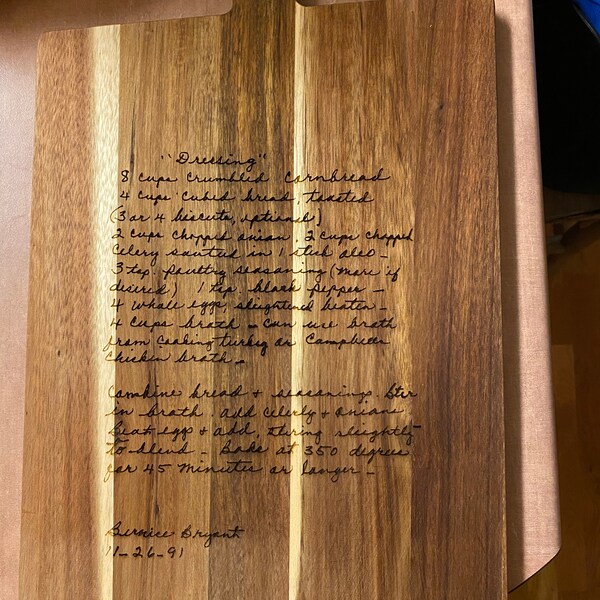 "Dressing"
8 cups crumbled cornbread
4 cups cubed bread, toasted
(3 or 4 biscuits, optional)
2 cups chopped onion, 2 cups chopped
celery sauteed in 1 stick oleo -
3 tsp. poultry seasoning (more if
desired) 1 tsp. black pepper -
4 whole eggs, sleightened beaten -
4 cups broth - can use broth
from cooking turkey or Campbells
chicken broth -
Combine bread + seasonings. Stir
in broth. add celery + onions
Beat eggs + add, stiring sleightly
to blend - Bake at 350 degrees
for 45 minutes or longer -
Bernice Bryant
11-26-91